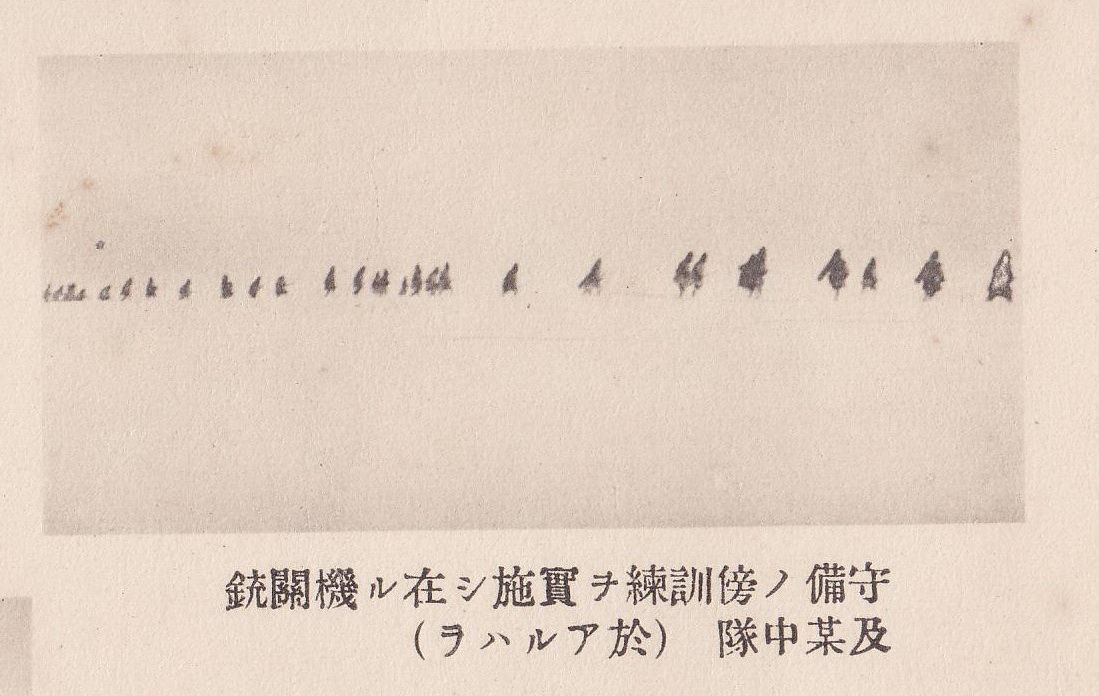 守備ノ傍訓練ヲ實施シ在ル機關銃
及某中隊　(於アルハヲ)